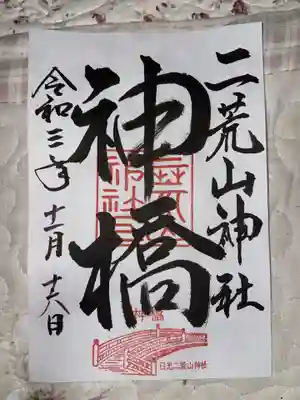 二荒山神社
神橋
令和三年 十一月 十六日
神橋
日光二荒山神社